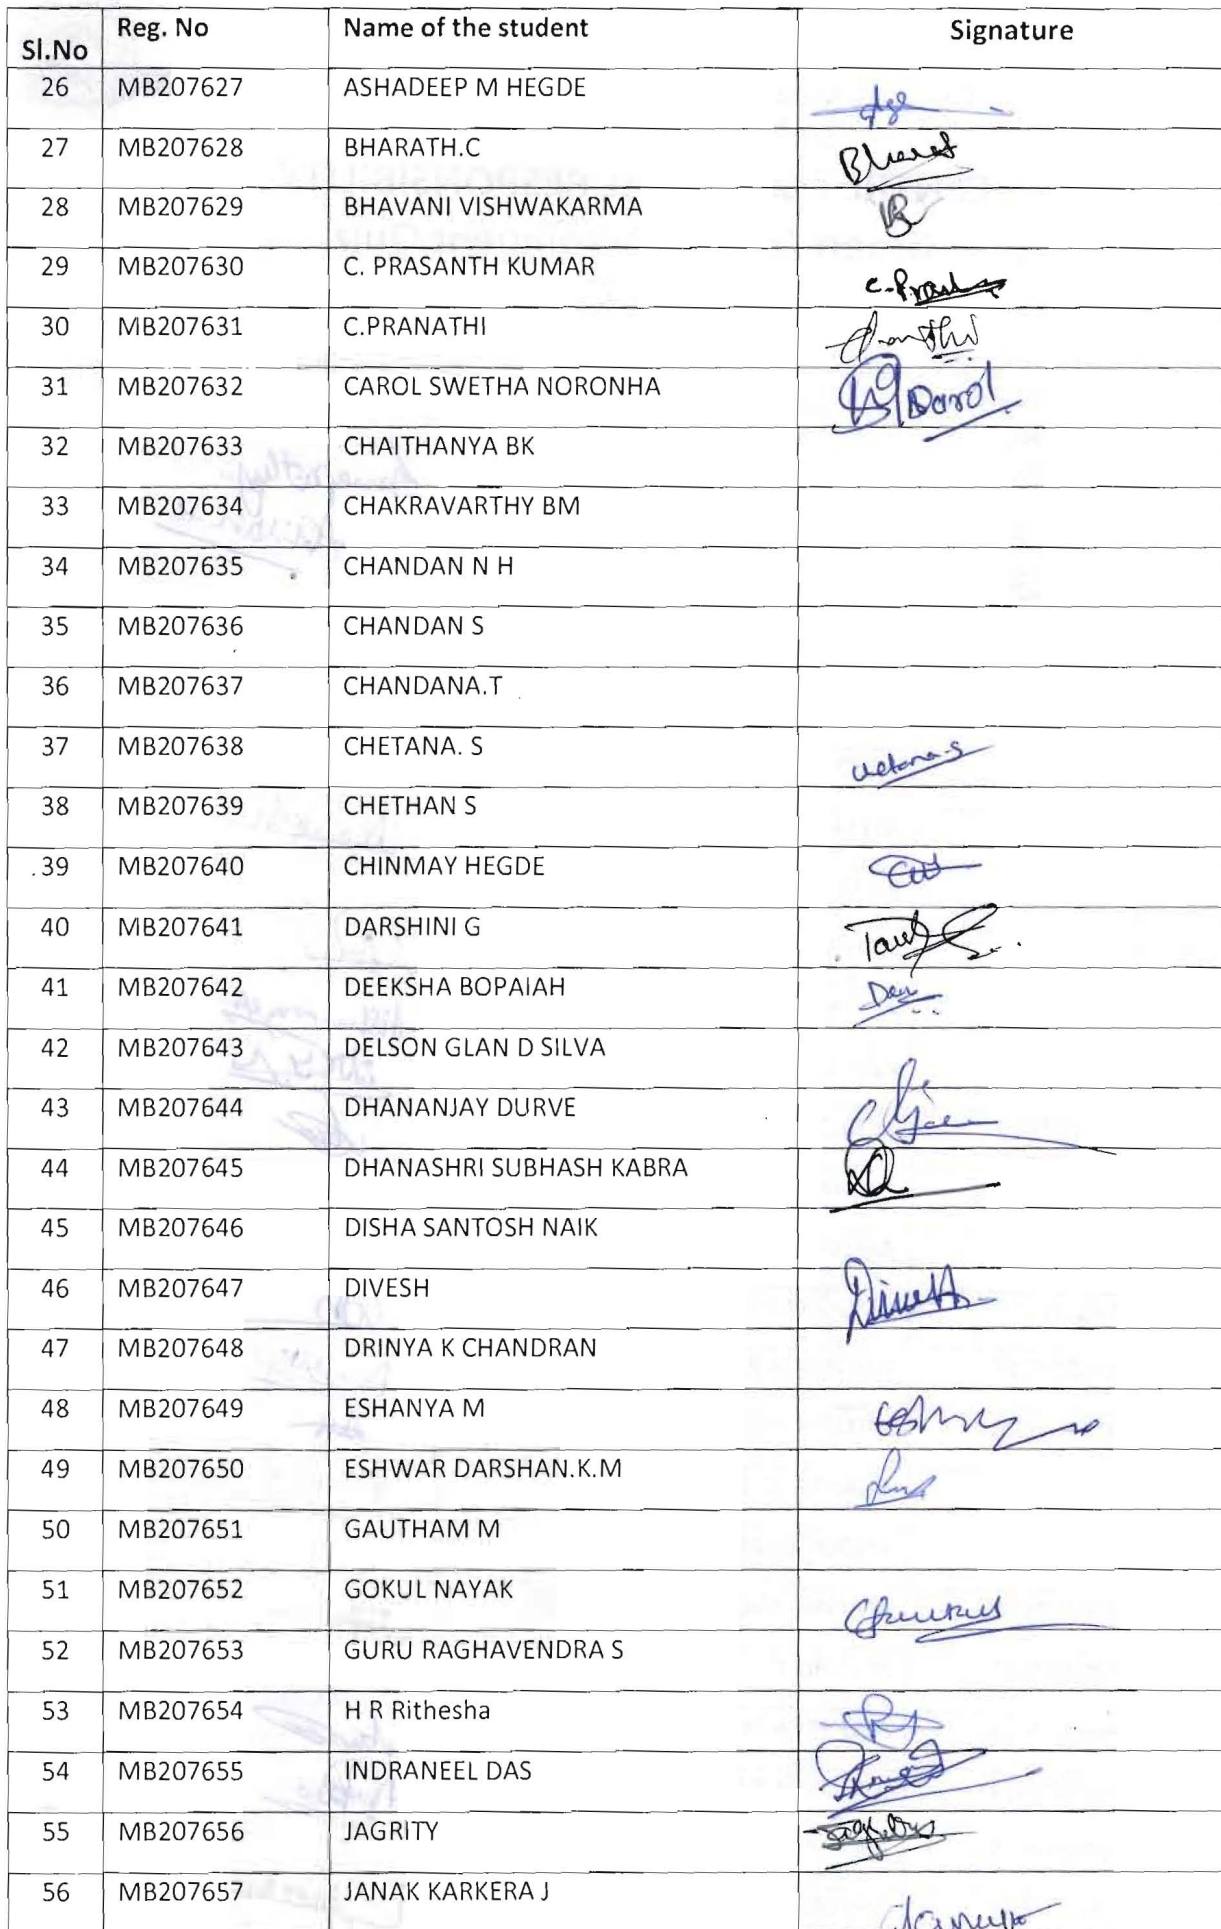 Sl.No Reg. No Name of the student Signature
26 MB207627 ASHADEEP M HEGDE
27 MB207628 BHARATH.C Bharat
28 MB207629 BHAVANI VISHWAKARMA
29 MB207630 C. PRASANTH KUMAR
30 MB207631 C.PRANATHI
31 MB207632 CAROL SWETHA NORONHA Carol
32 MB207633 CHAITHANYA BK
33 MB207634 CHAKRAVARTHY BM
34 MB207635 CHANDAN N H
35 MB207636 CHANDAN S
36 MB207637 CHANDANA.T
37 MB207638 CHETANA. S Chetana-S
38 MB207639 CHETHAN S
39 MB207640 CHINMAY HEGDE
40 MB207641 DARSHINI G
41 MB207642 DEEKSHA BOPAIAH
42 MB207643 DELSON GLAN D SILVA
43 MB207644 DHANANJAY DURVE
44 MB207645 DHANASHRI SUBHASH KABRA
45 MB207646 DISHA SANTOSH NAIK
46 MB207647 DIVESH
47 MB207648 DRINYA K CHANDRAN
48 MB207649 ESHANYA M
49 MB207650 ESHWAR DARSHAN.K.M
50 MB207651 GAUTHAM M
51 MB207652 GOKUL NAYAK
52 MB207653 GURU RAGHAVENDRA S
53 MB207654 H R Rithesha
54 MB207655 INDRANEEL DAS
55 MB207656 JAGRITY
56 MB207657 JANAK KARKERA J